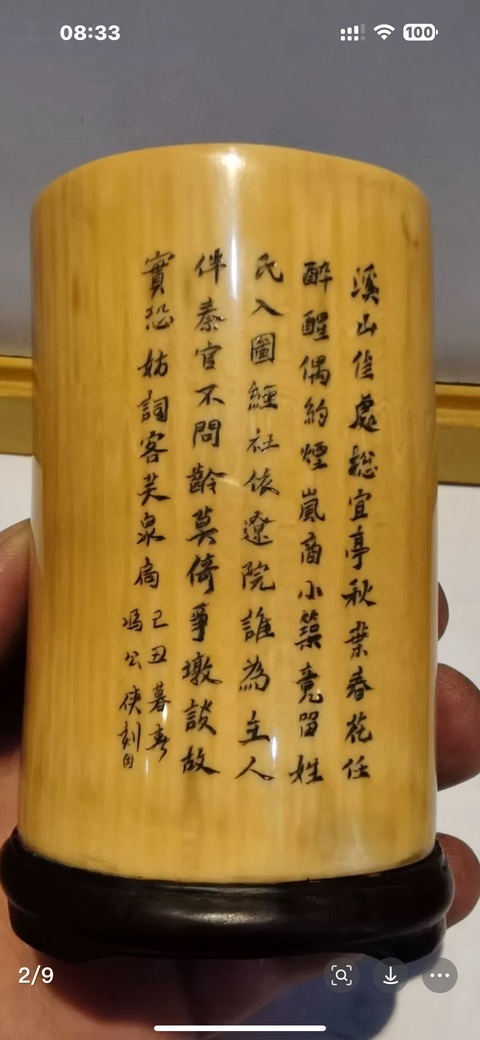 08:33
100
溪山佳處総宜亭秋葉春花任
醉醒偶約煙嵐商小築竟留姓
氏入圖經社依遼院誰為主人
伴秦官不問齡莫倚爭墩談故
實恐妨詞客笑泉扃
己丑暮春
馮公俠刻
2/9